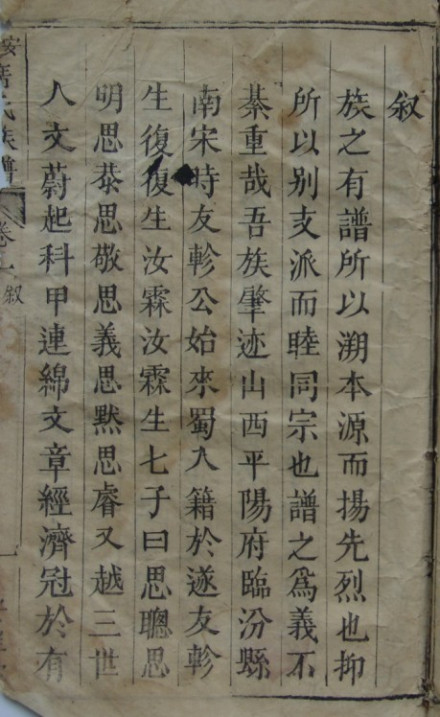 敘
族之有譜所以溯本源而揚先烈也抑
所以别支派而睦同宗也譜之為義不
綦重哉吾族肇迹山西平陽府臨汾縣
南宋時友軫公始來蜀入籍於遂友軫
生復復生汝霖汝霖生七子曰思聰思
明思恭思敬思義思黙思睿又越三世
人文蔚起科甲連綿文章經濟冠於有
氏族譜
卷
敘